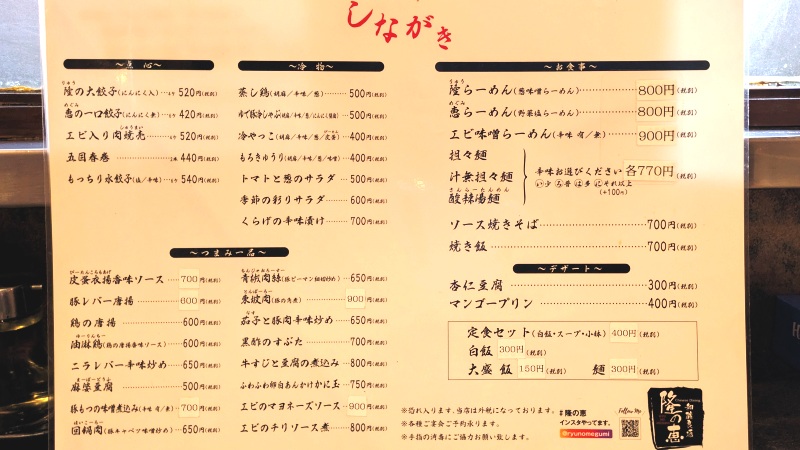 しながき
～点 心～
隆の大餃子(にんにく入) 520円(税別)
恵の一口餃子(にんにく無) 420円(税別)
エビ入り肉焼売 520円(税別)
五目春巻 440円(税別)
もっちり水餃子(塩/辛味) 540円(税別)
～冷 物～
蒸し鶏(胡麻/辛味/葱) 500円(税別)
ゆで豚冷しゃぶ 500円(税別)
冷やっこ 400円(税別)
もろきゅうり(胡麻/辛味/葱/味噌) 400円(税別)
トマトと葱のサラダ 500円(税別)
季節の彩りサラダ 600円(税別)
くらげの辛味漬け 700円(税別)
～お食事～
隆らーめん(葱味噌らーめん) 800円(税別)
恵らーめん(野菜塩らーめん) 800円(税別)
エビ味噌らーめん(辛味 有/無) 900円(税別)
担々麺
汁無担々麺
酸辣湯麺
辛味お選びください 各770円(税別)
(+100円)
ソース焼きそば 700円(税別)
焼き飯 700円(税別)
～デザート～
杏仁豆腐 300円(税別)
マンゴープリン 400円(税別)
定食セット(白飯・スープ・小鉢) 400円(税別)
白飯 300円(税別)
大盛 飯 150円(税別) 麺 300円(税別)
～つまみ一品～
皮蛋衣揚香味ソース 700円(税別)
豚レバー唐揚 600円(税別)
鶏の唐揚 600円(税別)
油淋鶏(鶏の唐揚香味ソース) 650円(税別)
ニラレバー辛味炒め 650円(税別)
麻婆豆腐 500円(税別)
豚もつの味噌煮込み(辛味 有/無) 700円(税別)
回鍋肉(豚キャベツ味噌炒め) 650円(税別)
青椒肉絲(豚ピーマン細切炒め) 650円(税別)
東坡肉(豚の角煮) 900円(税別)
茄子と豚肉辛味炒め 650円(税別)
黒酢のすぶた 700円(税別)
牛すじと豆腐の煮込み 800円(税別)
ふわふわ卵白あんかけかに玉 750円(税別)
エビのマヨネーズソース 900円(税別)
エビのチリソース煮 800円(税別)
※恐れ入ります。当店は外税になっております。
※各種ご宴会ご予約承ります。
※手指の消毒にご協力お願い致します。
#隆の恵
インスタやってます。
@ryunomegumi
Follow Me
隆の恵